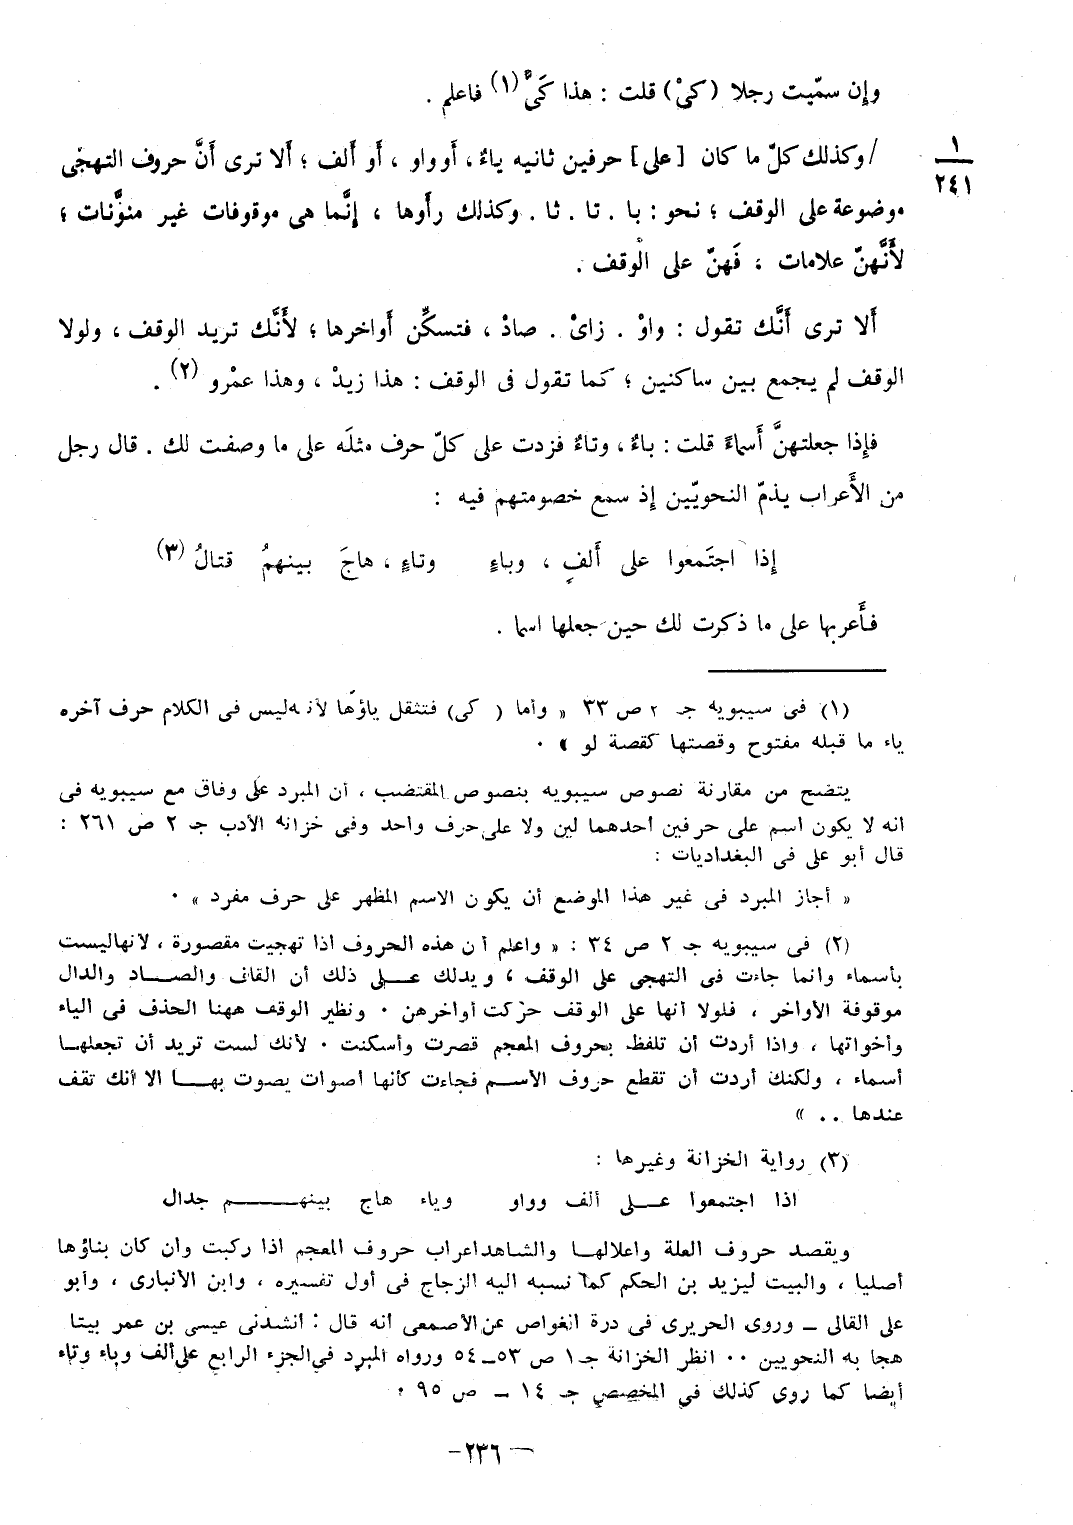 وإن سمّيت رجلا (كىْ) قلت : هذا كَىٌّ (١) فاعلم .
١
٢٤١
/ وكذلك كلّ ما كان [على] حرفين ثانيه ياءٌ ، أو واو ، أو ألف ؛ ألا ترى أنَّ حروف التهجّى
موضوعة على الوقف ؛ نحو : با . تا . ثا . وكذلك رأوها ، إنَّما هى موقوفات غير منوَّنات ؛
لأَنَّهنّ علامات ؛ فَهنّ على الوقف .
ألا ترى أنَّك تقول : واوْ . زاىْ . صادْ ، فتسكِّن أواخرها ؛ لأَنَّك تريد الوقف ، ولولا
الوقف لم يجمع بين ساكنين ؛ كما تقول فى الوقف : هذا زيدْ ، وهذا عمْرو (٢) .
فإذا جعلتهنَّ أسماءً قلت : باءٌ ، وتاءٌ فزدت على كلّ حرف مثلَه على ما وصفت لك . قال رجل
من الأعراب يذمّ النحويّين إذ سمع خصومتهم فيه :
إذا اجتَمعوا على أَلفٍ ، وباءٍ وتاءٍ ، هاجَ بينهمُ قتالُ (٣)
فأَعربها على ما ذكرت لك حين جعلها اسما .
(١) فى سيبويه جـ ٢ ص ٣٣ « وأما ( كى) فتثقل ياؤها لأنه ليس فى الكلام حرف آخره
ياء ما قبله مفتوح وقصتها كقصة لو » ٠
يتضح من مقارنة نصوص سيبويه بنصوص المقتضب ، أن المبرد على وفاق مع سيبويه فى
انه لا يكون اسم على حرفين أحدهما لين ولا على حرف واحد وفى خزانة الأدب جـ ٢ ص ٢٦١ :
قال أبو على فى البغداديات :
« أجاز المبرد فى غير هذا الموضع أن يكون الاسم المظهر على حرف مفرد » ٠
(٢) فى سيبويه جـ ٢ ص ٣٤ : « واعلم أن هذه الحروف اذا تهجيت مقصورة ، لأنها ليست
بأسماء وانما جاءت فى التهجى على الوقف ، ويدلك عـلى ذلك أن القاف والصـاد والدال
موقوفة الأواخر ، فلولا أنها على الوقف حرّكت أواخرهن ٠ ونظير الوقف ههنا الحذف فى الياء
وأخواتها ، واذا أردت أن تلفظ بحروف المعجم قصرت وأسكنت ٠ لأنك لست تريد أن تجعلهـا
أسماء ، ولكنك أردت أن تقطع حروف الأسـم فجاءت كأنها أصوات يصوت بهـا الا أنك تقف
عندها . . »
(٣) رواية الخزانة وغيرها :
اذا اجتمعوا عـلى ألف وواو وياء هاج بينهـم جدال
ويقصد حروف العلة واعلالهـا والشاهد اعراب حروف المعجم اذا ركبت وان كان بناؤها
أصليا ، والبيت ليزيد بن الحكم كما نسبه اليه الزجاج فى أول تفسيره ، وابن الأنبارى ، وأبو
على القالى ـ وروى الحريرى فى درة الغواص عن الأصمعى أنه قال : أنشدنى عيسى بن عمر بيتا
هجا به النحويين ٠٠ انظر الخزانة جـ١ ص ٥٣ـ٥٤ ورواه المبرد في الجزء الرابع على ألف وباء وتاء
أيضا كما روى كذلك في المخصص جـ ١٤ ـ ص ٩٥ ٠
— ٢٣٦ —